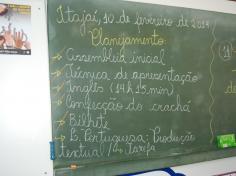 Itajaí, 10 de fevereiro de 2014
Planejamento:
→ Assembleia inicial
→ Técnica de apresentação
→ Inglês (14 h 15 min)
→ Confecção do crachá
→ Bilhete
→ L. Portuguesa: Produção
textual / Tarefa
(1)